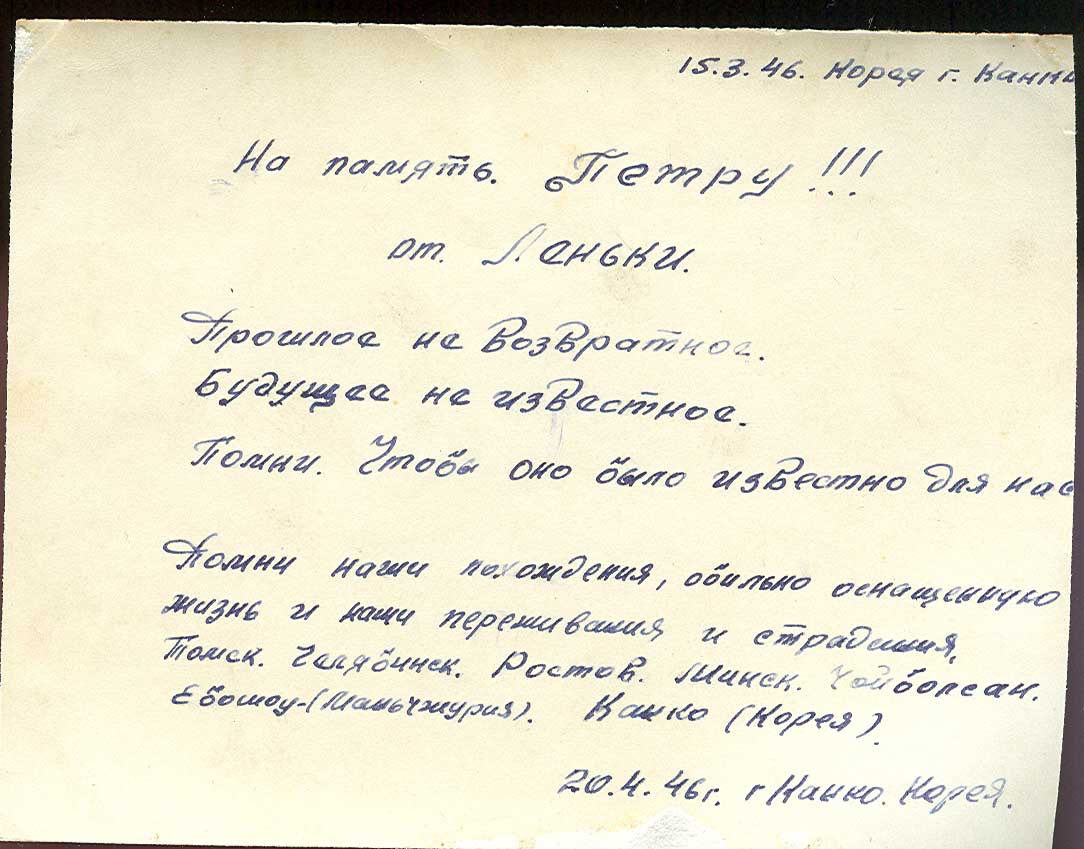 15.3.46. Корея г. Канко
На память. Петру!!!
от. Леньки.
Прошлое не возвратное.
Будущее не известное.
Помни. Чтобы оно было известно для нас
Помни наши похождения, обильно оснащенную
жизнь и наши переживания и страдания,
Томск. Челябинск. Ростов. Минск. Чойболсан.
Ебошоу-(Маньчжурия). Канко (Корея).
20.4.46г. г Канко. Корея.